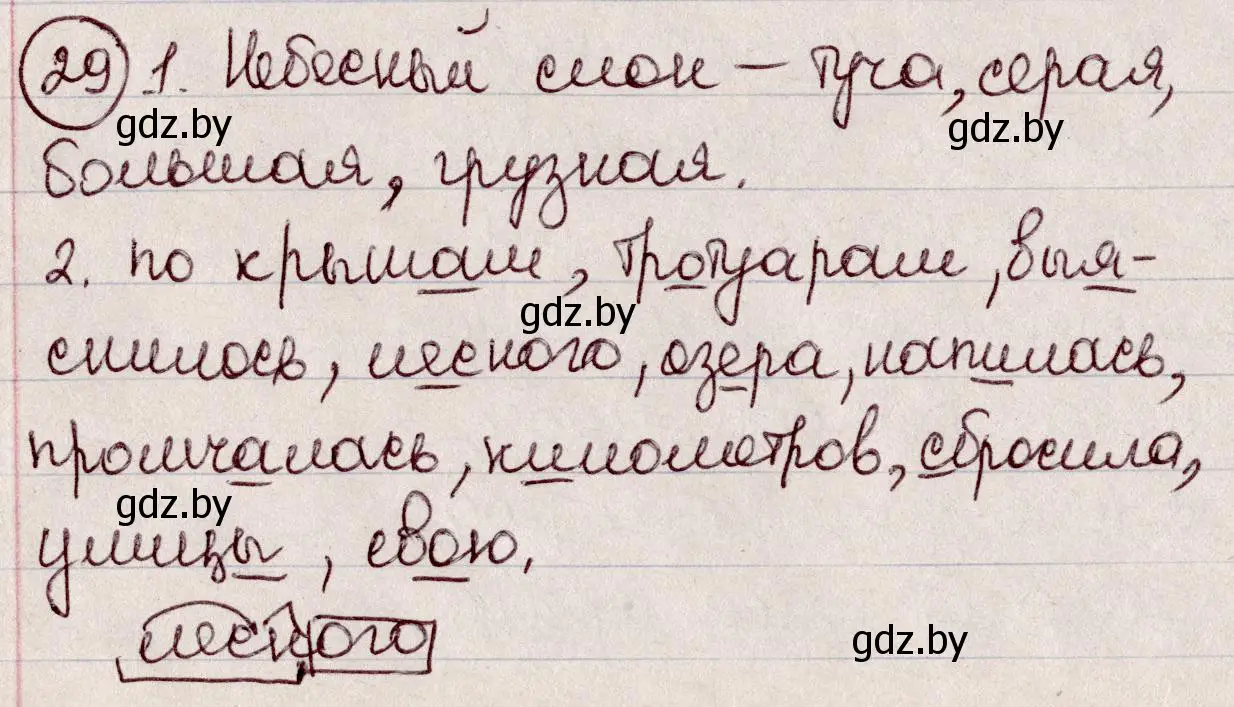 29 1. Небесный слон – туча, серая,
gdz.by gdz.by
большая, грузная.
2. по крышам, тротуарам, выя-
gdz.by
снилось, лесного, озера, напилась,
промчалась, километров, сбросила,
gdz.by
улицы, свою.
лесного
gdz.by